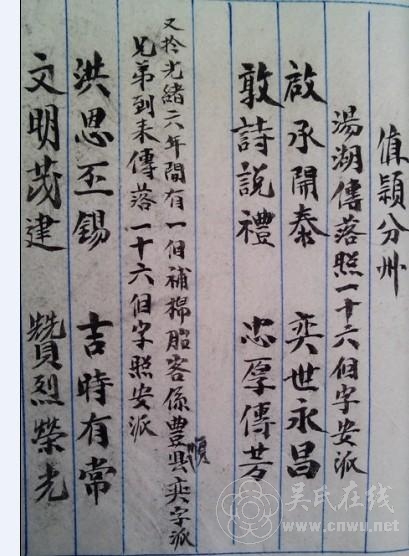 值頴分州
湯湖傳落照一十六個字安派
啟承開泰 奕世永昌
敦詩說禮 忠厚傳芳
又於光緒六年間有一個補棉胎客係豊順县奕字派
兄弟到来傳落一十六個字照安派
洪恩丕錫 吉時有常
文明茂建 贊烈榮光
吴氏在线
www.cnwu.net